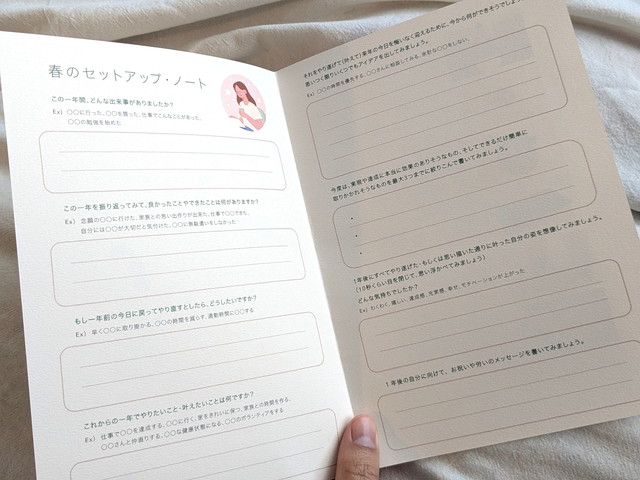 春のセットアップ・ノート
この一年間、どんな出来事がありましたか？
Ex) 〇〇に行った、〇〇を買った、仕事でこんなことがあった、
〇〇の勉強を始めた
この一年を振り返ってみて、良かったことやできたことは何がありますか？
Ex) 念願の〇〇に行けた、家族との思い出作りが出来た、仕事で〇〇できた、
自分には〇〇が大切だと気付けた、〇〇に無駄遣いをしなかった
もし一年前の今日に戻ってやり直すとしたら、どうしたいですか？
Ex) 早く〇〇に取り掛かる、〇〇の時間を減らす、通勤時間に〇〇する
これからの一年でやりたいこと・叶えたいことは何ですか？
Ex) 仕事で〇〇を達成する、〇〇に行く、家をきれいに保つ、家族との時間を作る、
〇〇さんと仲直りする、〇〇な健康状態になる、〇〇のボランティアをする
それをやり遂げて(叶えて)来年の今日を悔いなく迎えるために、今から何ができそうでしょ
思いつく限りいくつでもアイデアを出してみましょう。
Ex) 〇〇の時間を優先する、〇〇さんに相談してみる、余計な〇〇をしない、
今度は、実現や達成に本当に効果のありそうなもの、そしてできるだけ簡単に
取りかかれそうなものを最大3つまでに絞りこんで書いてみましょう。
・
・
・
1年後にすべてやり遂げた・もしくは思い描いた通りに叶った自分の姿を想像してみましょう。
(10秒くらい目を閉じて、思い浮かべてみましょう)
どんな気持ちでしたか？
Ex) わくわく、嬉しい、達成感、充実感、幸せ、モチベーションが上がった
1年後の自分に向けて、お祝いや労いのメッセージを書いてみましょう。